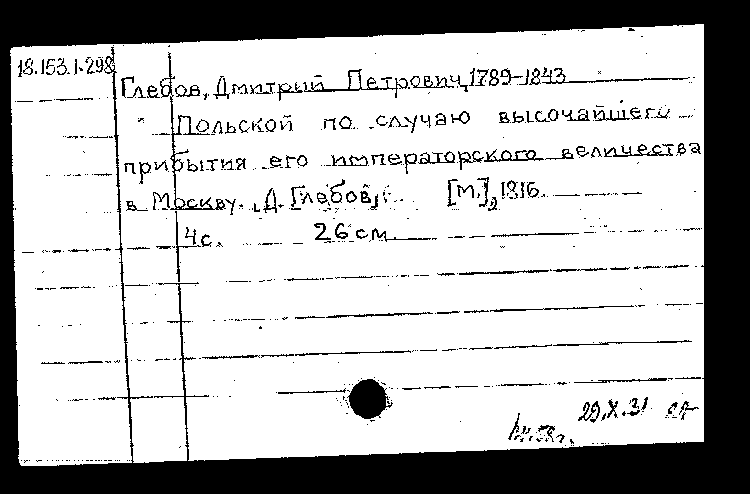 18.153.1.298
Глебов, Дмитрий Петрович, 1789-1843
" Польской по случаю высочайшего
прибытия его императорского величества
в Москву. Д. Глебов, [М.], 1816.
4 с. 26 см.
29.X.31